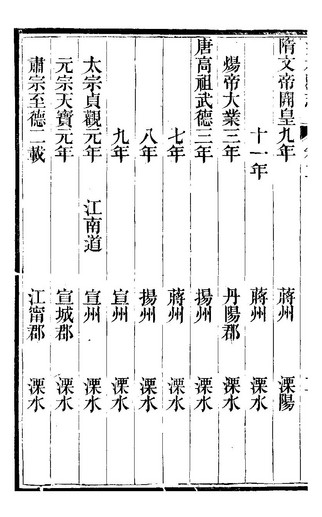 隋文帝開皇九年 蔣州 溧陽
十一年 蔣州 溧水
煬帝大業三年 丹陽郡 溧水
唐高祖武德三年 揚州 溧水
七年 蔣州 溧水
八年 揚州 溧水
九年 宣州 溧水
太宗貞觀元年 江南道 宣州 溧水
元宗天寶元年 宣城郡 溧水
肅宗至德二載 江甯郡 溧水